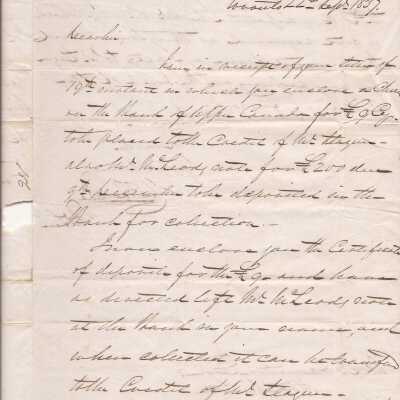 Toronto 22nd Sept. 1837.
Dear Sir
I am in receipt of your letter of
19th instant in which you enclose a Check
on the Bank of Upper Canada for £9 Cy.
to be placed to the Credit of Mr. Teague
also Mr. McLeods note for £200 due
9th December to be deposited in the
Bank for collection.
I now enclose you the Certificate
of deposit for the £9. and have
as directed left Mr. McLeods note
at the Bank in your name, and
when collected it can be transfd
to the Credit of Mr. Teague.